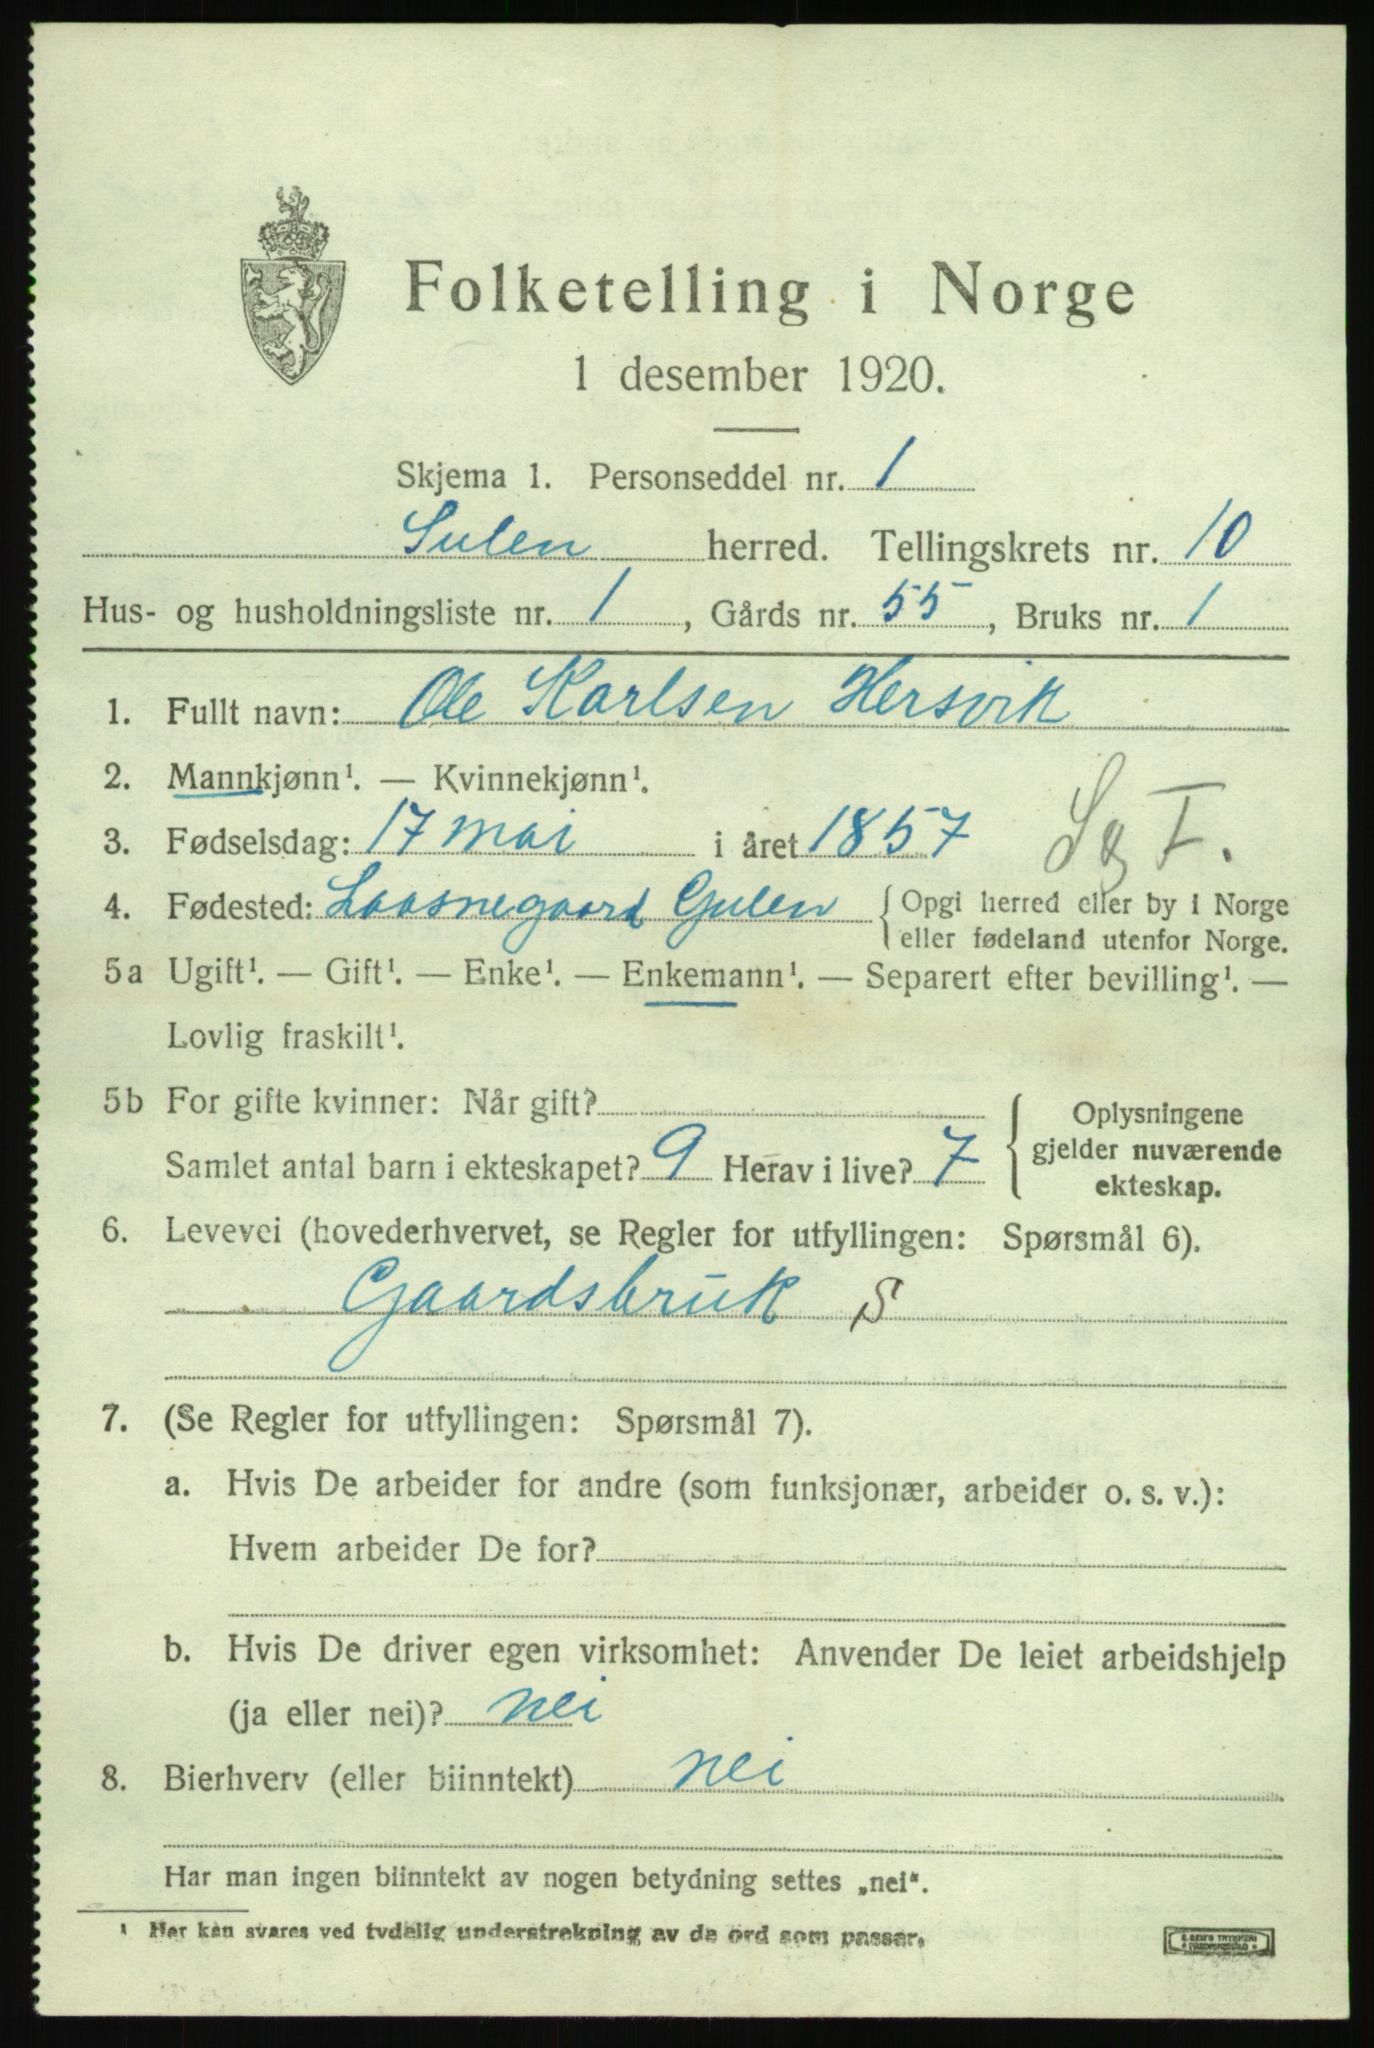 Folketelling i Norge
1 desember 1920.
Skjema 1. Personseddel nr. 1
Sulen herred. Tellingskrets nr. 10
Hus- og husholdningsliste nr. 1, Gårds nr. 55, Bruks nr. 1
1. Fullt navn: Ole Karlsen Hersvik
2. Mannkjønn¹. — Kvinnekjønn¹.
3. Fødselsdag: 17 mai i året 1857
4. Fødested: Laasnegaard Gulen { Opgi herred eller by i Norge
eller fødeland utenfor Norge.
5a Ugift¹. — Gift¹. — Enke¹. — Enkemann¹. — Separert efter bevilling¹. —
Lovlig fraskilt¹.
5b For gifte kvinner: Når gift?
Samlet antal barn i ekteskapet? 9 Herav i live? 7
Oplysningene
gjelder nuværende
ekteskap.
6. Levevei (hovederhvervet, se Regler for utfyllingen: Spørsmål 6).
Gaardsbruk S
7. (Se Regler for utfyllingen: Spørsmål 7).
a. Hvis De arbeider for andre (som funksjonær, arbeider o. s. v.):
Hvem arbeider De for?
b. Hvis De driver egen virksomhet: Anvender De leiet arbeidshjelp
(ja eller nei)? nei
8. Bierhverv (eller biinntekt) nei
Har man ingen biinntekt av nogen betydning settes „nei“.
¹ Her kan svares ved tydelig understrekning av de ord som passer.